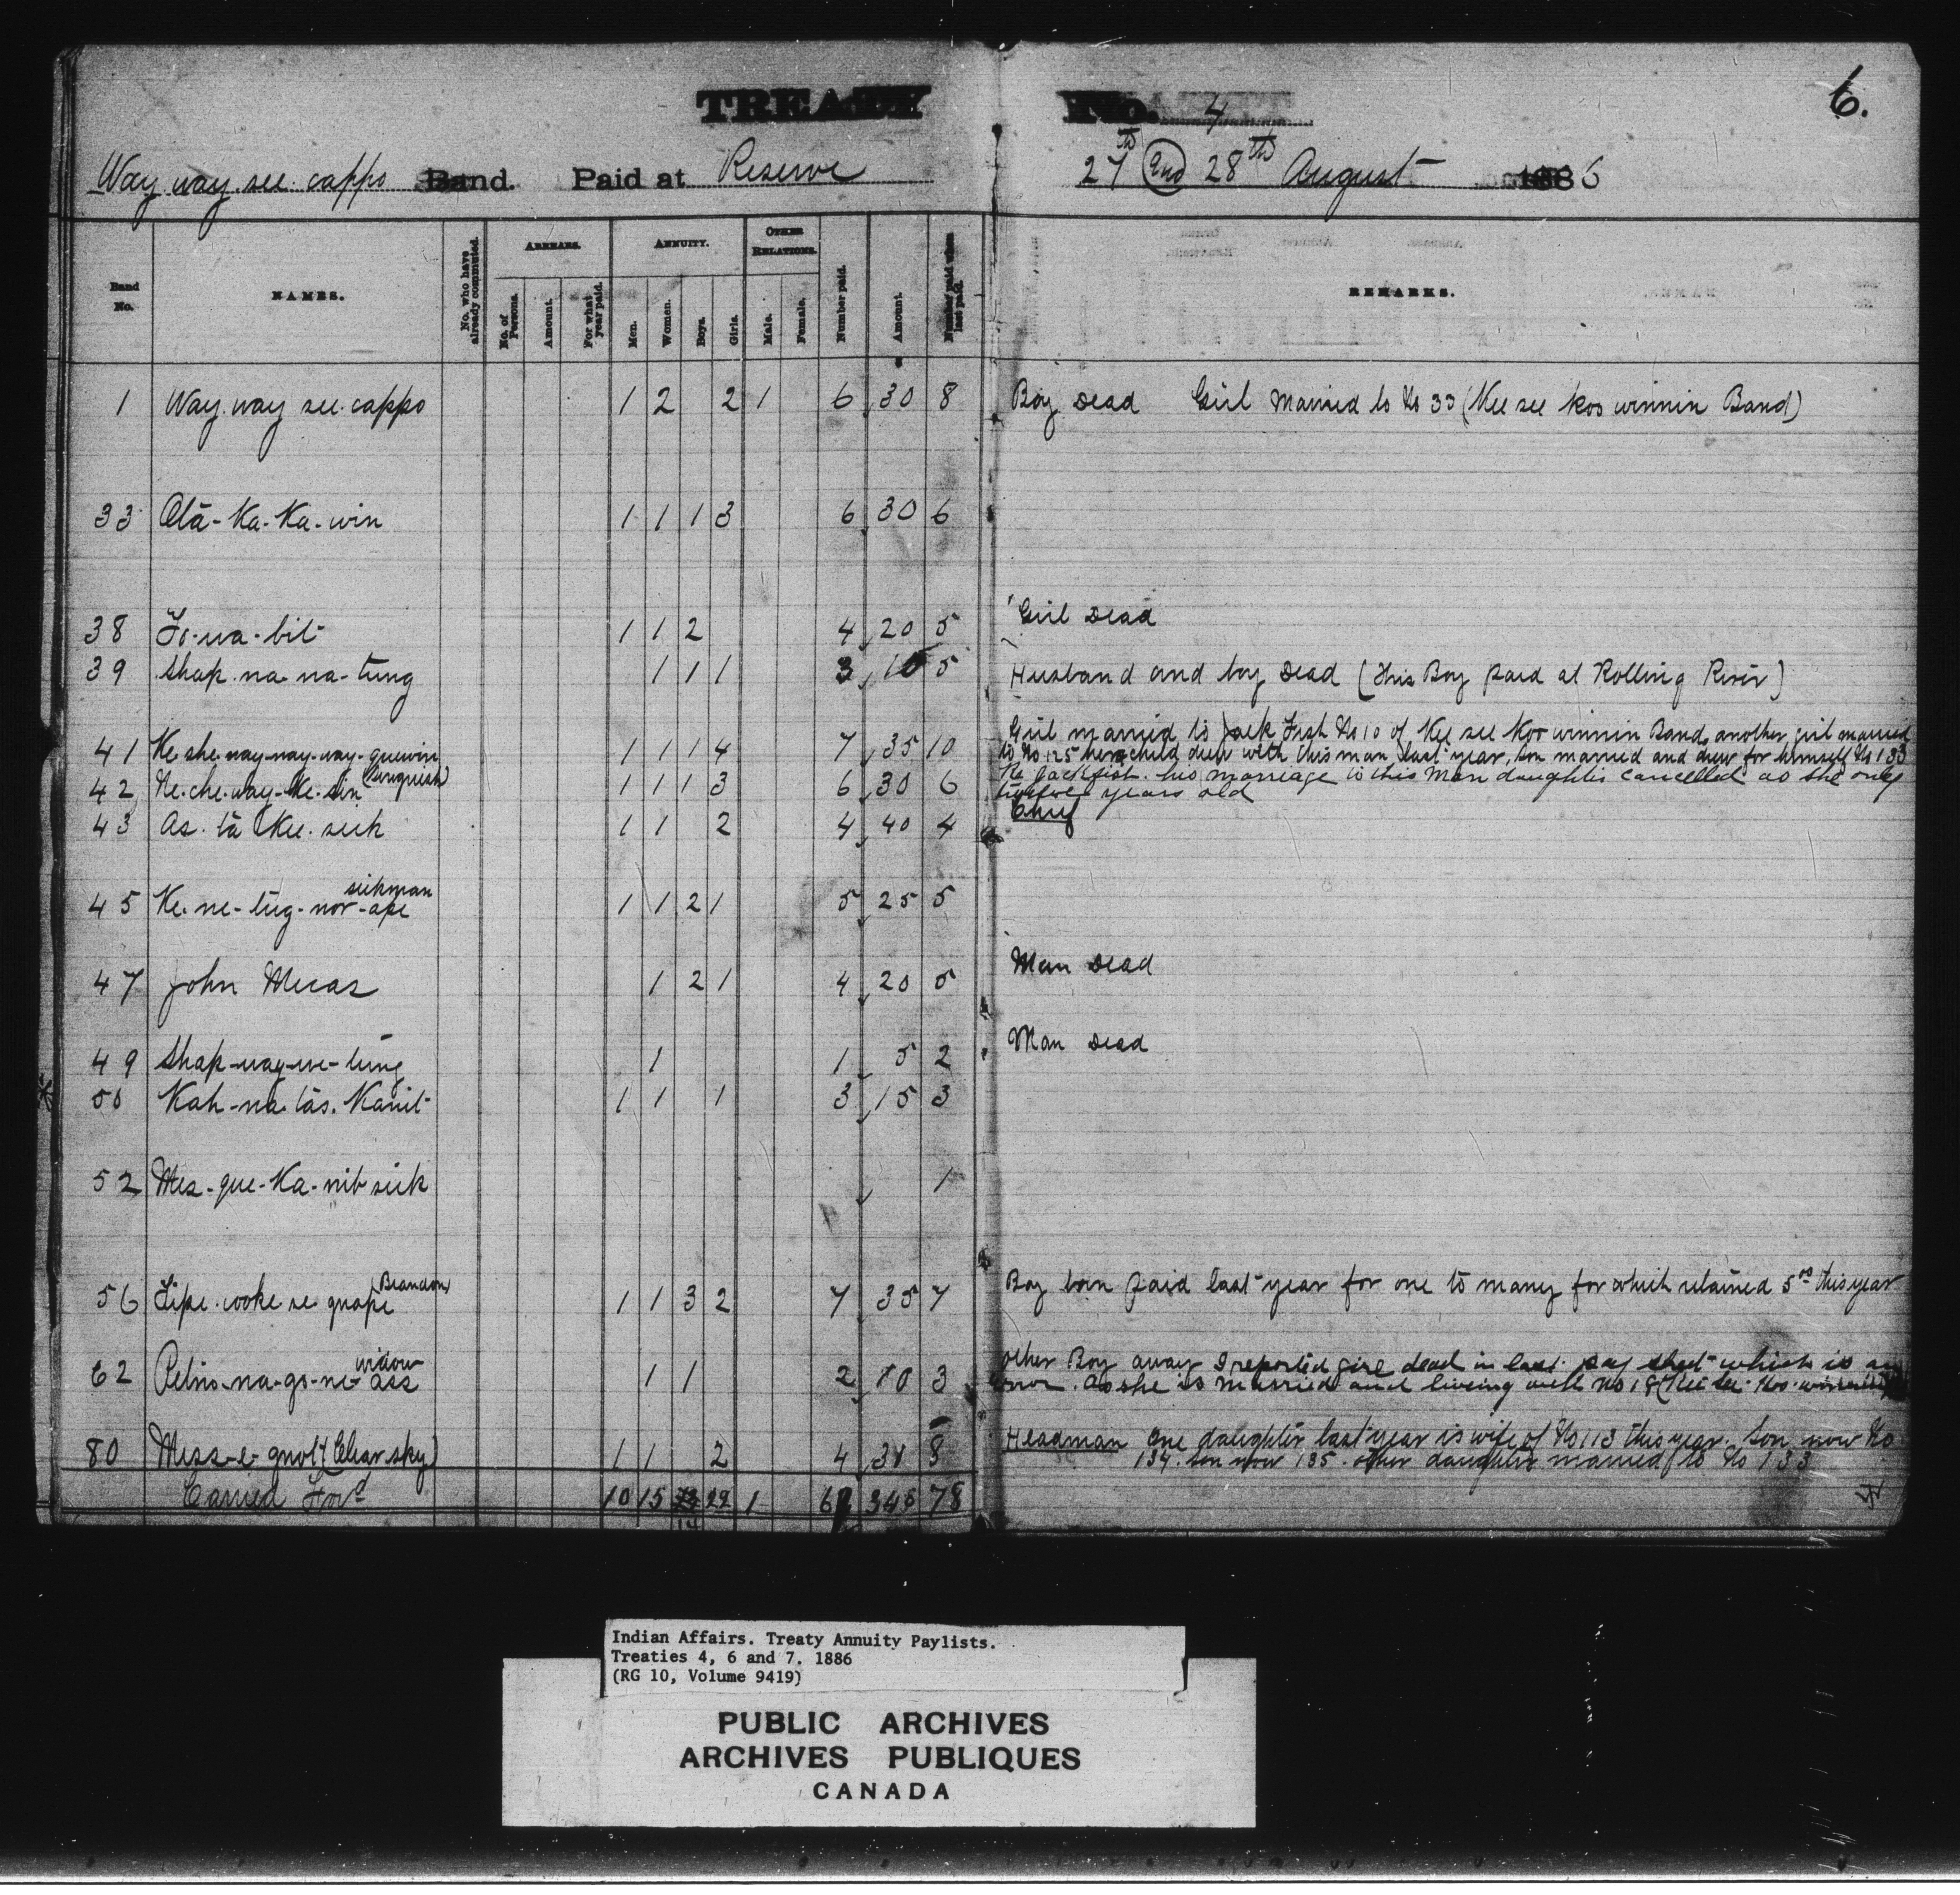 TREATY No. 4
6.
Way way see cappo Band. Paid at Reserve 27th and 28th August 1886
Band No. NAMES. No. who have already commuted. ARREARS. No. of Persons. Amount. For what year paid. ANNUITY. Men. Women. Boys. Girls. OTHER RELATIONS. Male. Female. Number paid. Amount. Number paid when last paid. REMARKS.
1 Way way see cappo 1 2 2 1 6 30 8 Boy Dead Girl Married to No 33 (Kee see koo winnin Band)
33 Otā-Ka-Ka-win 1 1 1 3 6 30 6
38 1 1 2 4 20 5 Girl Dead
39 Shap na na-tung 1 1 1 3 5 Husband and boy Dead (This Boy paid at Rolling River)
Girl married to Jack Fish No 10 of Kee see Koo winnin Band, another girl married
41 Ke she way-nay-way-gewin 1 1 1 4 7 35 10 to No 125 her child drew with this man last year, Son married and drew for himself No 133
42 Ne-che-way-Ke-sin 1 1 1 3 6 30 6 Re Jackfish his marriage to this Man daughter cancelled as she only
twelve years old
43 As. tā Kee. sick 1 1 2 4 40 4 Chief
sickman
45 Ke-ne-tug-nor-ape 1 1 2 1 5 25 5
47 John Mecas 1 2 1 4 20 5 Man Dead
49 Shap-way-we-tung 1 1 5 2 Man Dead
50 Kah-na-tās. Kanit 1 1 1 3 15 3
52 Mes-que-Ka-nib sick 1
Brandon
56 1 1 3 2 7 35 7 Boy born paid last year for one to many for which retained 5.00 this year
widow other Boy away I reported girl dead in last pay sheet which is an
62 1 1 2 10 3 error. as she is married and living with No 18 (Kee see Koo winnin
80 Mess-e-quot (Clear sky) 1 1 2 4 8 Headman One daughter last year is wife of No 113 this year. Son now No
134. Son now 135. other daughter married to No 133
Carried Ford 10 15 14 22 1 345 78
Indian Affairs. Treaty Annuity Paylists.
Treaties 4, 6 and 7. 1886
(RG 10, Volume 9419)
PUBLIC ARCHIVES
ARCHIVES PUBLIQUES
CANADA